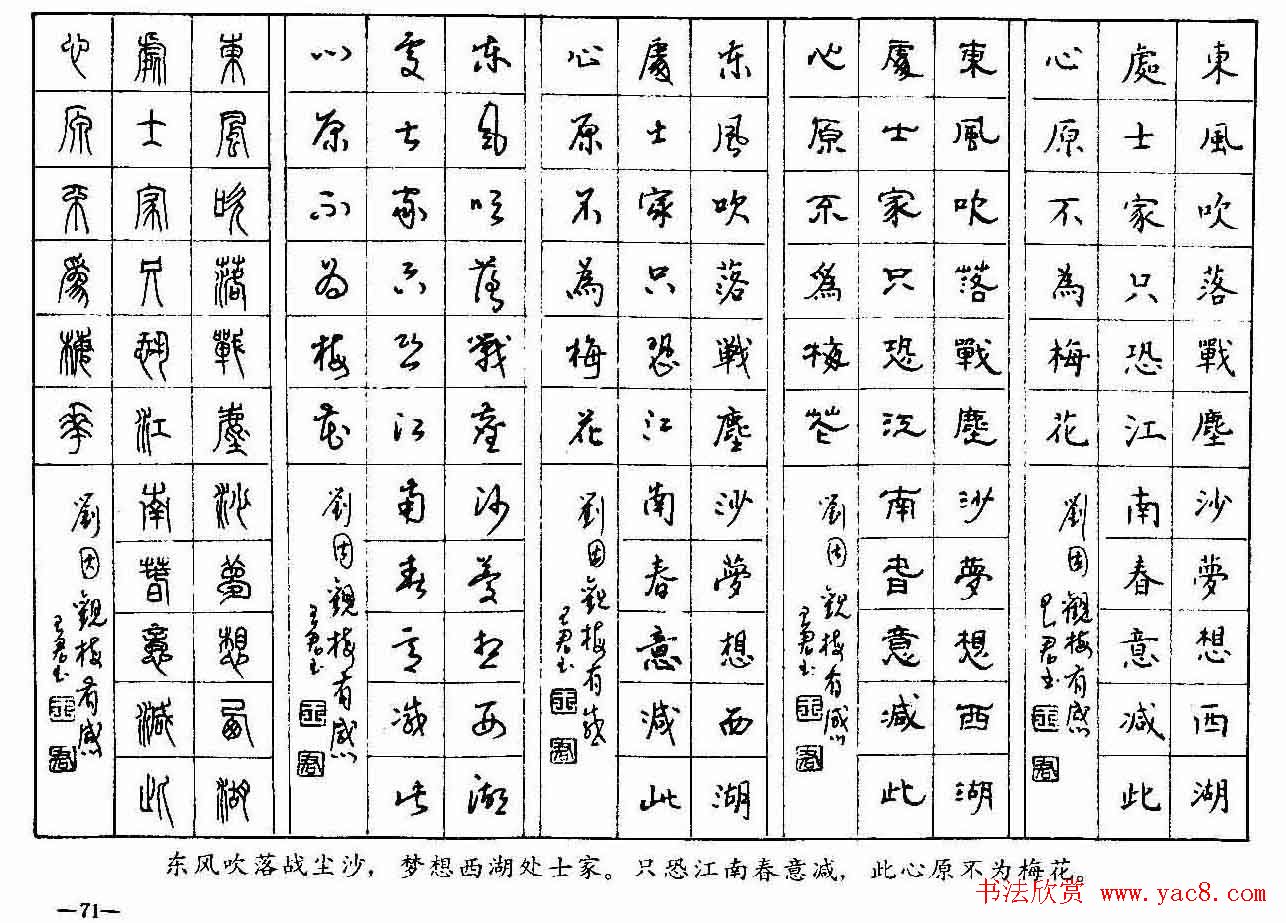 東風吹落戰塵沙夢想西湖
處士家只恐江南春意減此
心原不為梅花
劉因觀梅有感
王君書
東風吹落戰塵沙夢想西湖
處士家只恐江南春意減此
心原不爲梅花
劉因觀梅有感
王君書
東風吹落戰塵沙夢想西湖
處士家只恐江南春意減此
心原不為梅花
劉因觀梅有感
王君書
東風吹落戰塵沙夢想西湖
處士家只恐江南春意減此
心原不為梅花
劉因觀梅有感
王君書
東風吹落戰塵沙夢想西湖
處士家只恐江南春意減此
心原不爲梅花
劉因觀梅有感
王君書
东风吹落战尘沙，梦想西湖处士家。只恐江南春意减，此心原不为梅花。
书法欣赏 www.yac8.com
—71—